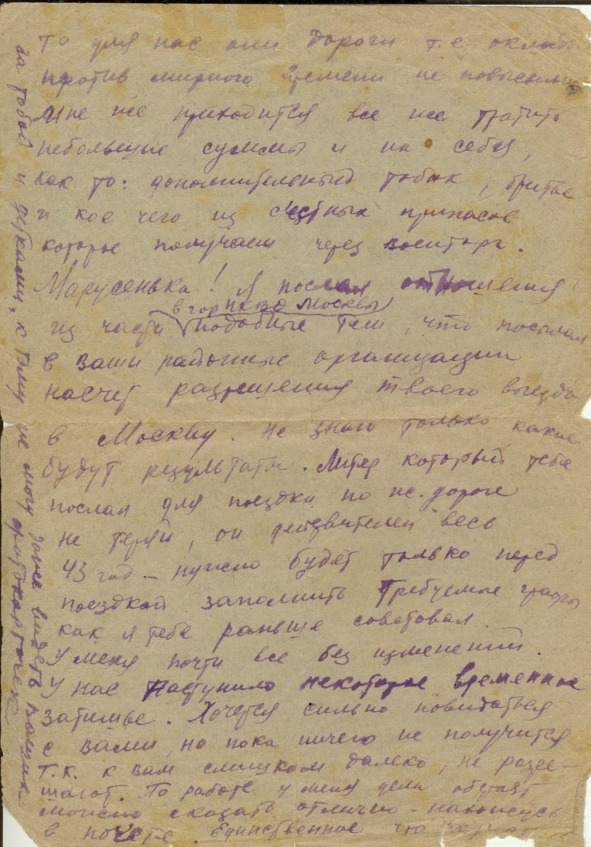 то для нас они дороги т.е оклады
против мирного времени не повысились
Мне же приходится все же тратить
небольшие суммы и на себя,
как то: дополнительный табак, бритье
и кое чего из с'естных припасов
которые получаем через военторг.
Марусенька! Я послал отношения
в гор НКВД Москвы
из части подобные тем, что посылал
в ваши районные организации
насчет разрешения твоего выезда
в Москву. Не знаю только какие
будут результаты. Литер который тебе
послал для поездки по ж. дороге
не теряй, он действителен весь
43 год – нужно будет только перед
поездкой заполнить требуемые графы
как я тебе раньше советовал.
У меня почти все без изменений.
У нас наступило некоторое временное
затишье. Хочется сильно повидаться
с вами, но пока ничего не получится
т.к. к вам слишком далеко, не разсе-
шагот. По работе у меня дела обстоят
можно сказать отлично – нахожусь
в почете. Единственное что
за тобой и детками, к тому же не могу даже видеть ваших
фотокарточек